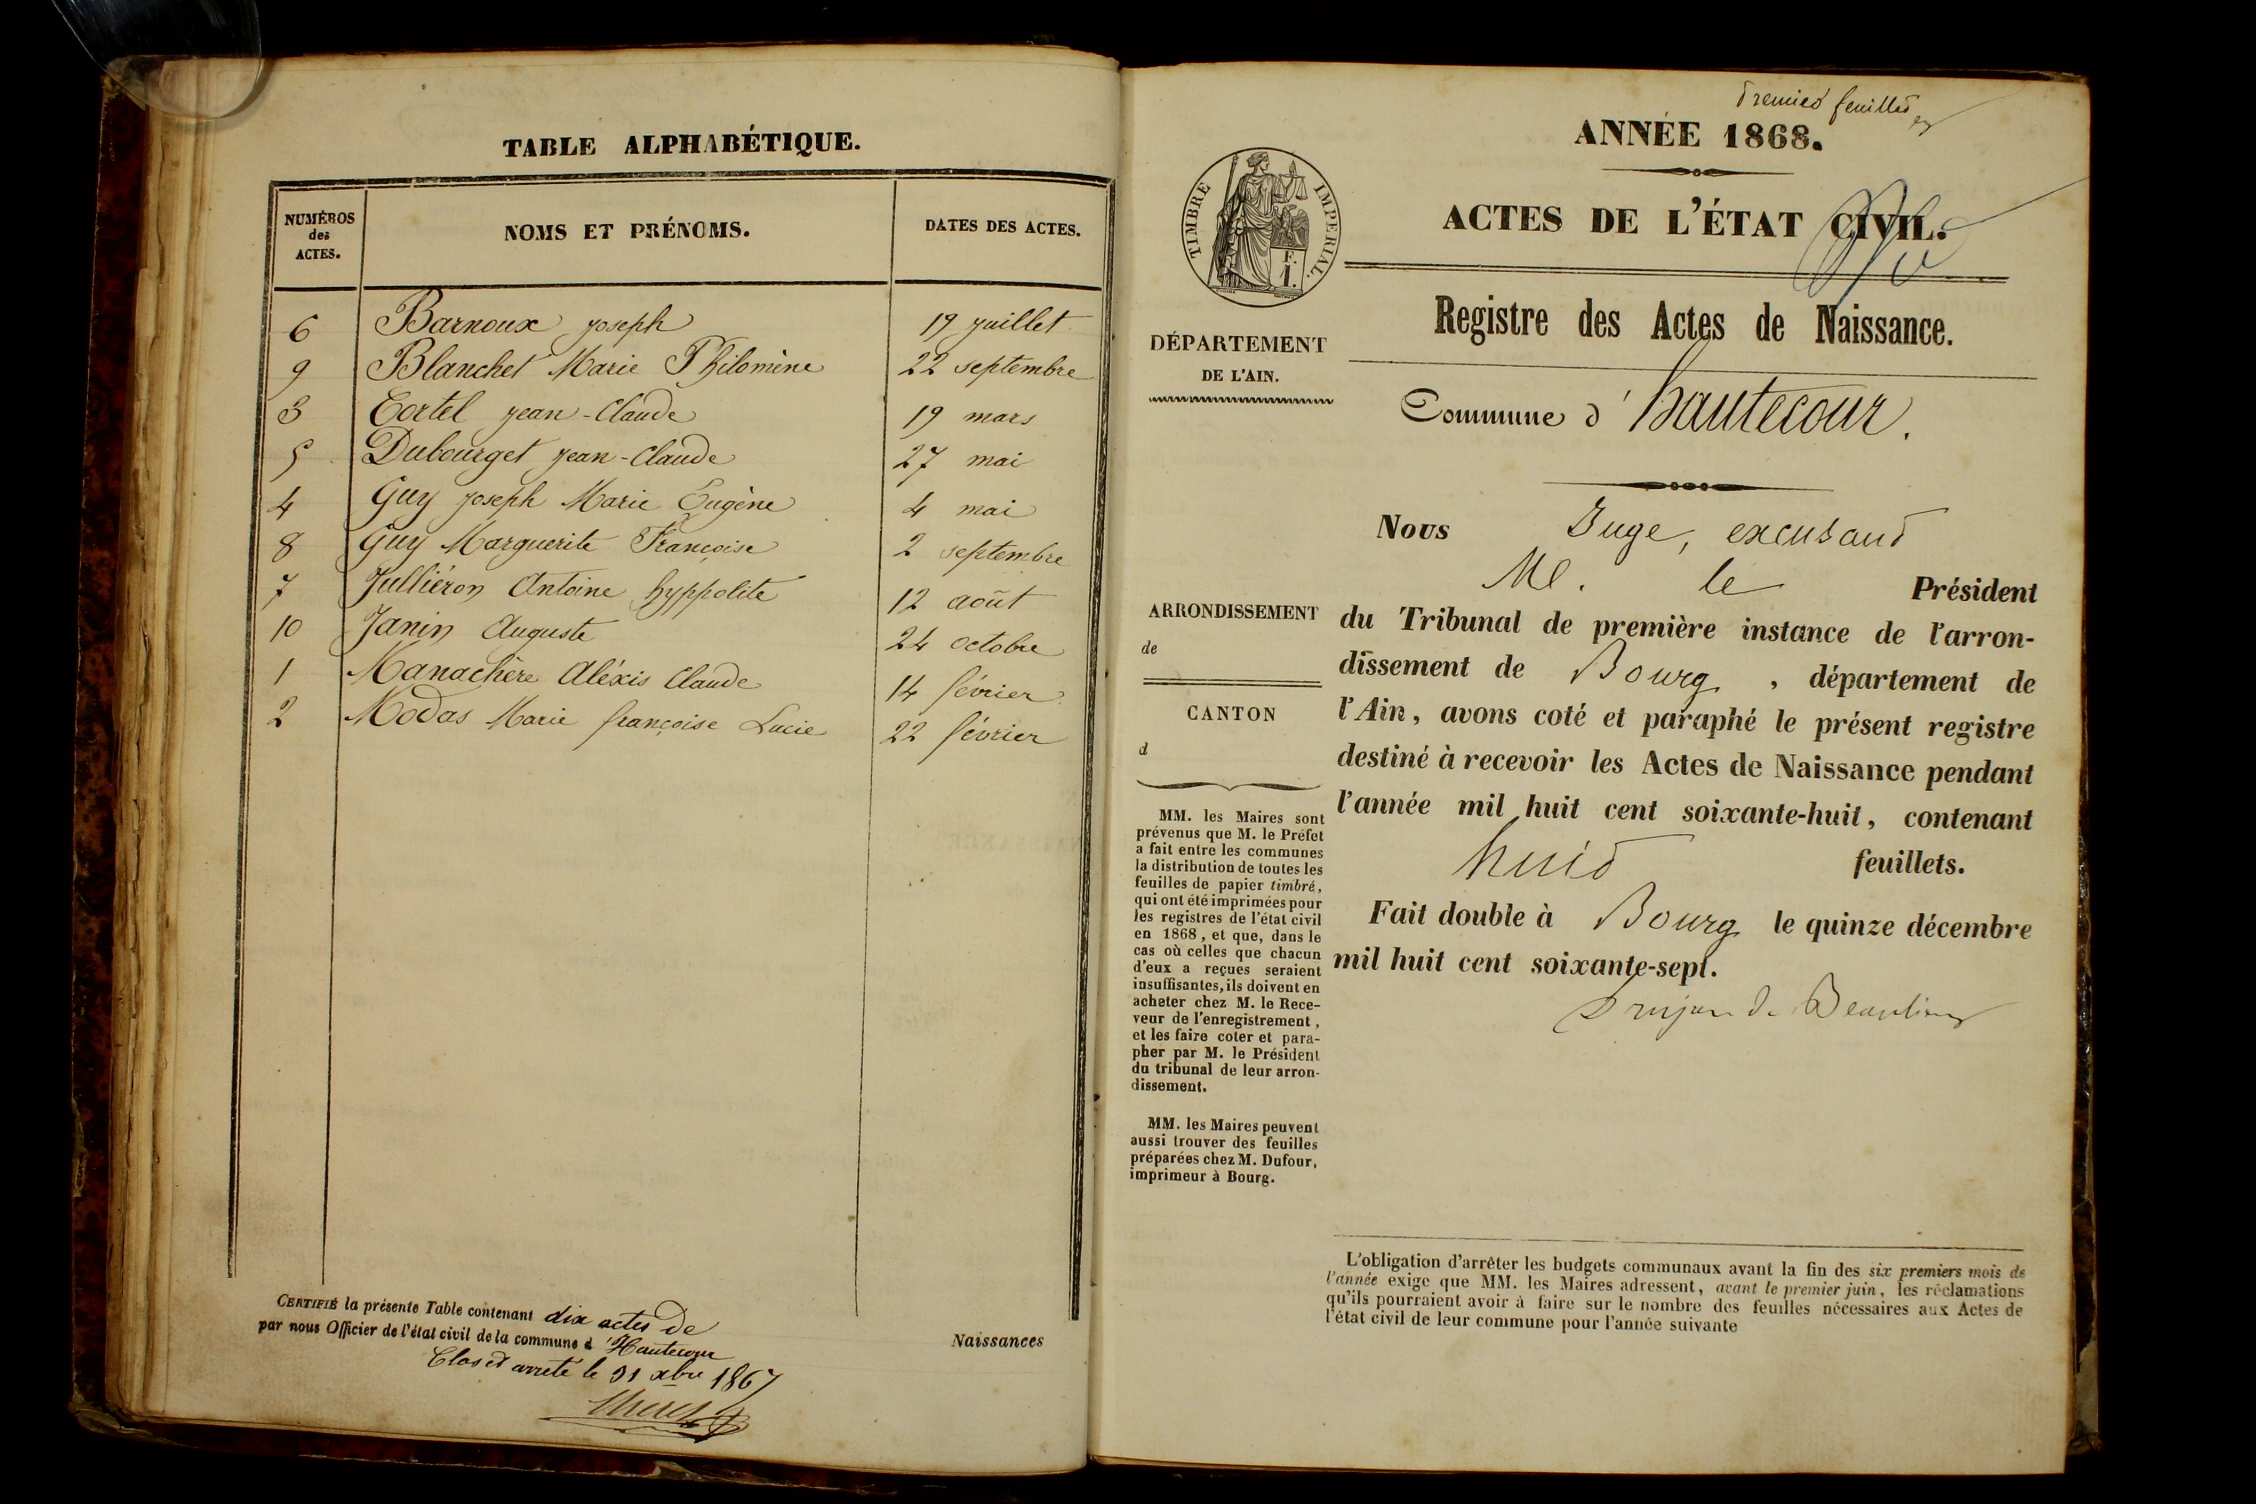 TABLE ALPHABÉTIQUE.
NUMÉROS des ACTES. NOMS ET PRÉNOMS. DATES DES ACTES.
6 Barnoux joseph 19 juillet
9 Blanchet Marie Philomène 22 septembre
3 Cortel jean-Claude 19 mars
5 Dubourget jean-Claude 27 mai
4 Guy joseph Marie Eugène 4 mai
8 Guy Marguerite Françoise 2 septembre
7 Julliéron Antoine hyppolite 12 août
10 Janin Auguste 24 octobre
1 Manachère Aléxis Claude 14 février
2 Modas Marie françoise Lucie 22 février
CERTIFIÉ la présente Table contenant dix actes de Naissances
par nous Officier de l'état civil de la commune d'Hautecour
Clos et arrêté le 31 xbre 1867
premier feuillet
ANNÉE 1868.
ACTES DE L'ÉTAT CIVIL.
TIMBRE IMPERIAL.
F.
1.
Registre des Actes de Naissance.
DÉPARTEMENT
DE L'AIN.
Commune d'hautecour.
Nous Juge, excusant
M. le Président
du Tribunal de première instance de l'arron-
dissement de Bourg, département de
l'Ain, avons coté et paraphé le présent registre
destiné à recevoir les Actes de Naissance pendant
l'année mil huit cent soixante-huit, contenant
huit feuillets.
Fait double à Bourg le quinze décembre
mil huit cent soixante-sept.
de Beaulieu
ARRONDISSEMENT
de
CANTON
d
MM. les Maires sont
prévenus que M. le Préfet
a fait entre les communes
la distribution de toutes les
feuilles de papier timbré,
qui ont été imprimées pour
les registres de l'état civil
en 1868, et que, dans le
cas où celles que chacun
d'eux a reçues seraient
insuffisantes, ils doivent en
acheter chez M. le Rece-
veur de l'enregistrement,
et les faire coter et para-
pher par M. le Président
du tribunal de leur arron-
dissement.
MM. les Maires peuvent
aussi trouver des feuilles
préparées chez M. Dufour,
imprimeur à Bourg.
L'obligation d'arrêter les budgets communaux avant la fin des six premiers mois de
l'année exige que MM. les Maires adressent, avant le premier juin, les réclamations
qu'ils pourraient avoir à faire sur le nombre des feuilles nécessaires aux Actes de
l'état civil de leur commune pour l'année suivante